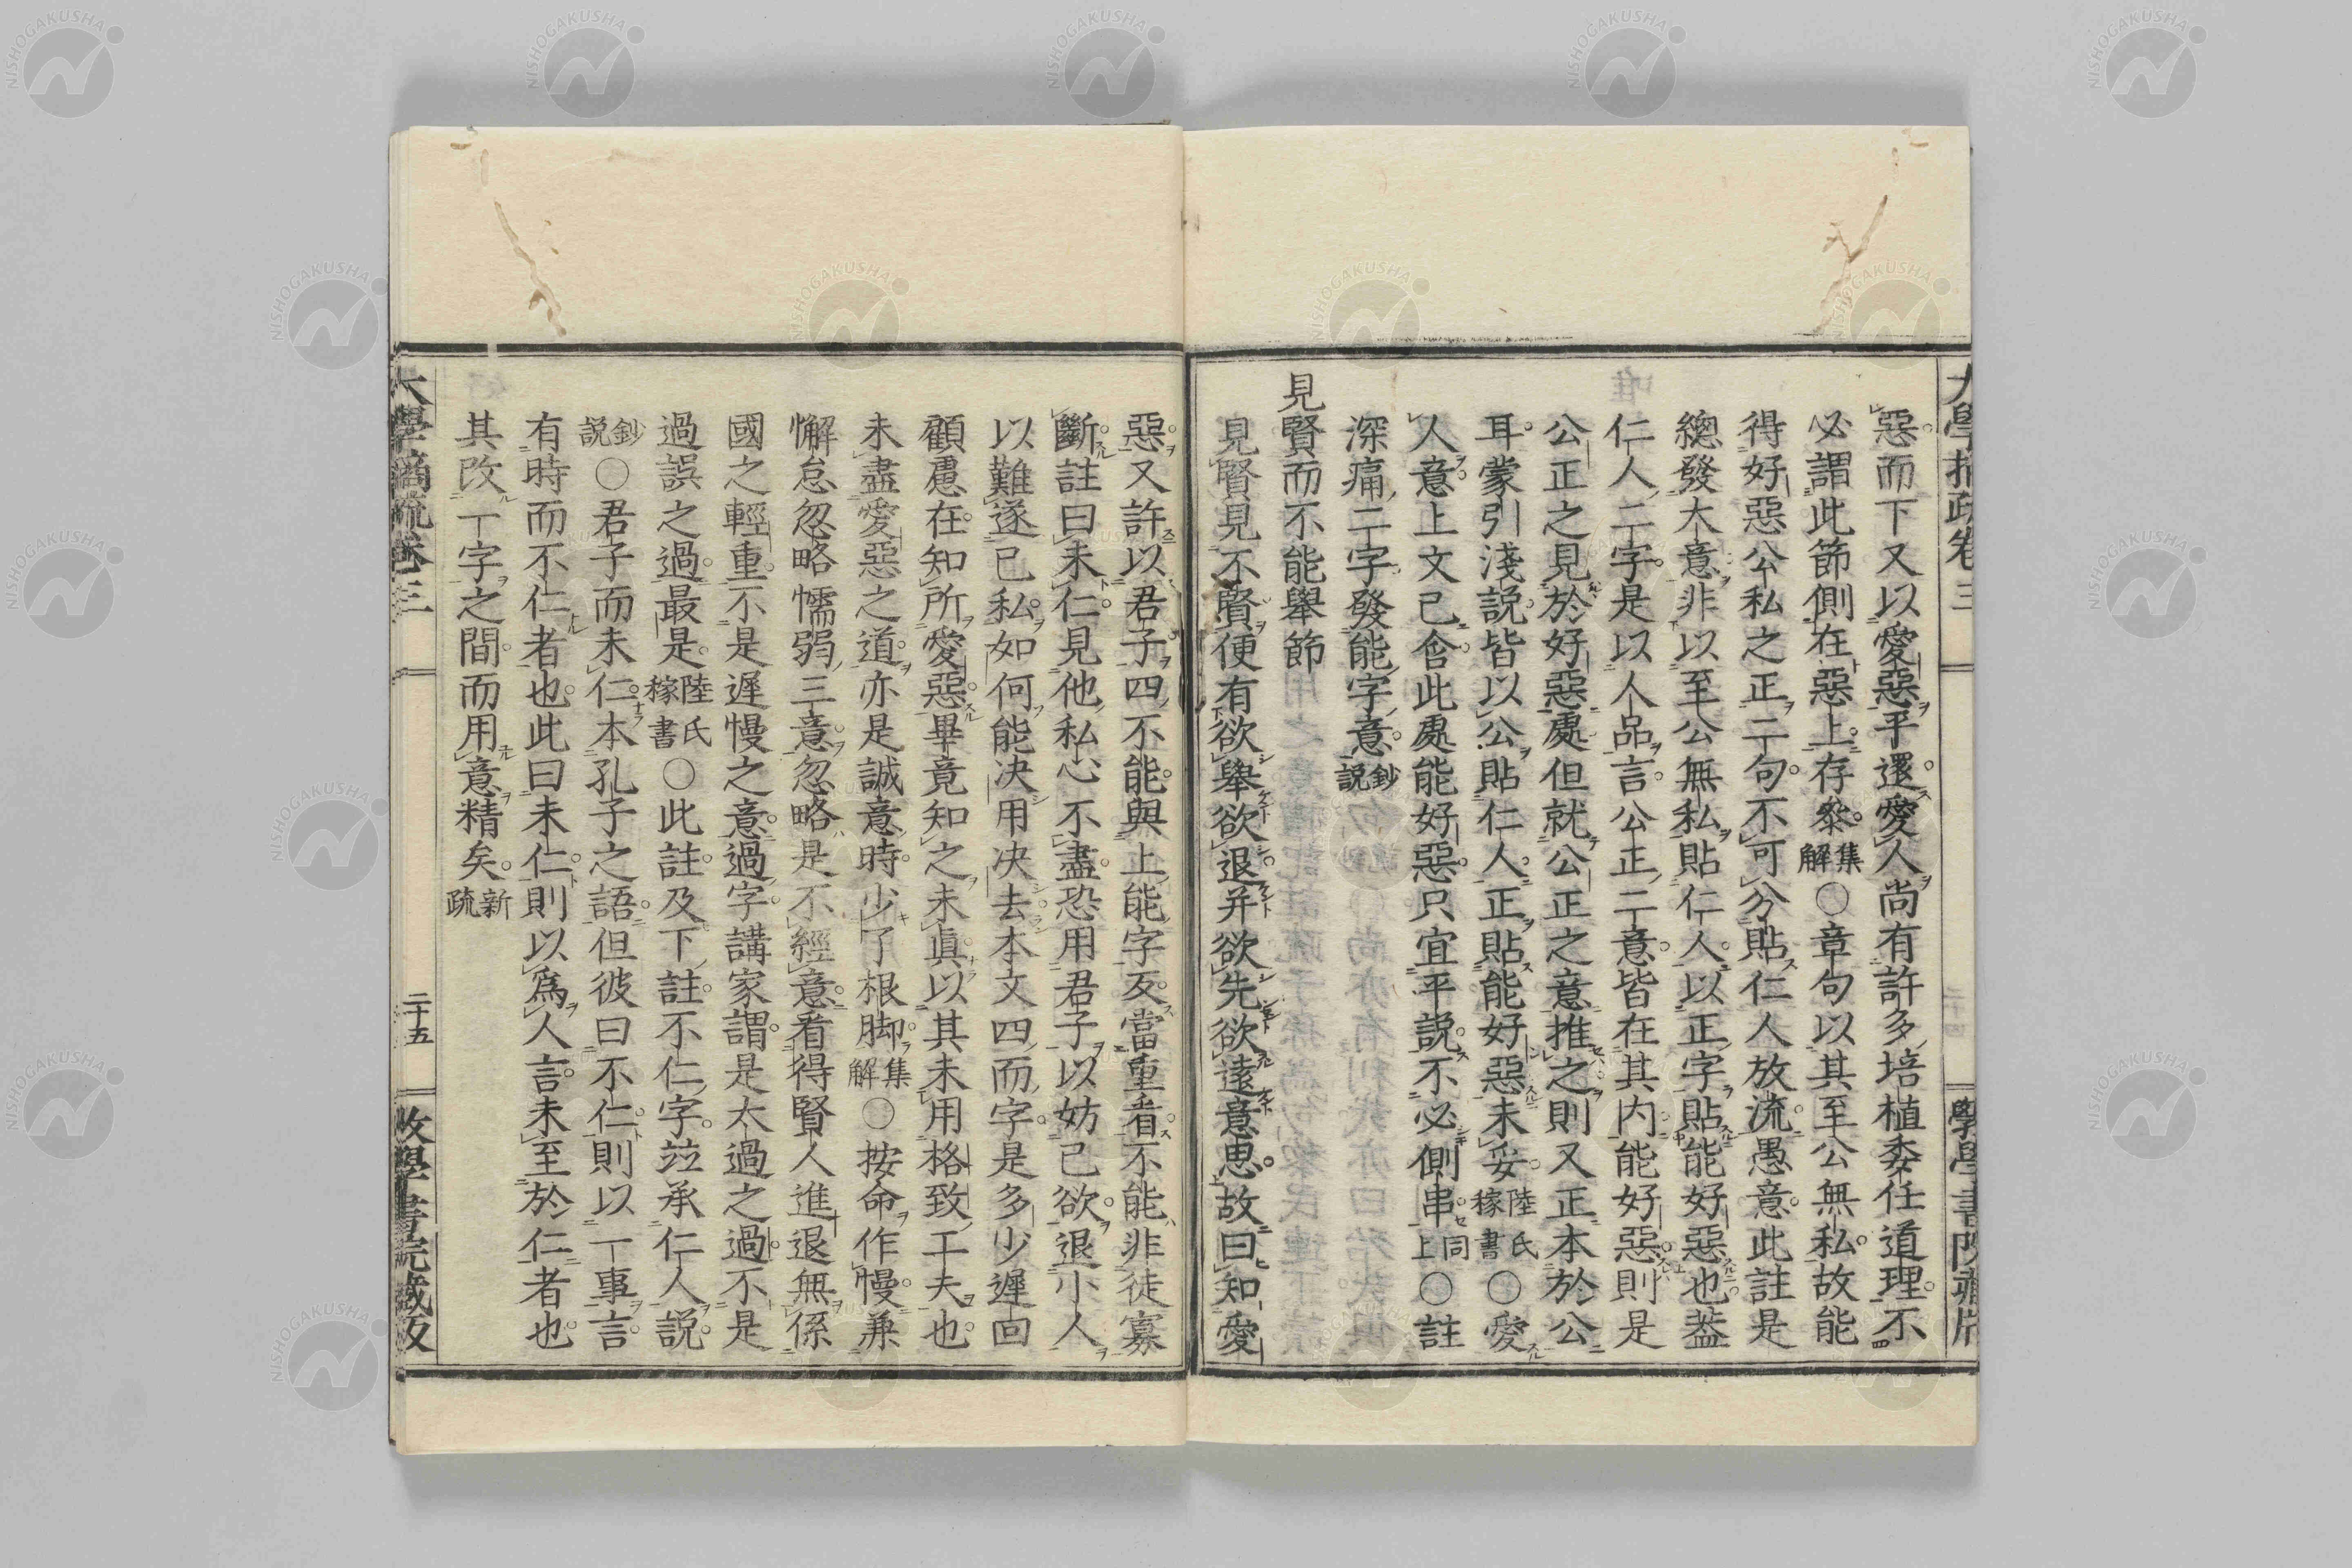 惡而下又以愛惡平還愛人尚有許多培植委任道理不
必謂此節側在惡上存參集解○章句以其至公無私故能
得好惡公私之正二句不可分貼仁人放流愚意此註是
總發大意非以至公無私貼仁人以正字貼能好惡也蓋
仁人二字是以人品言公正二意皆在其内能好惡則是
公正之見於好惡處但就公正之意推之則又正本於公
耳蒙引淺説皆以公貼仁人正貼能好惡未妥陸氏稼書○愛
人意上文已含此處能好惡只宜平説不必側串同上○註
深痛二字發能字意鈔説
見賢而不能舉節
見賢見不賢便有欲舉欲退并欲先欲遠意思故曰知愛
惡又許以君子四不能與上能字反當重看不能非徒寡
斷註曰未仁見他私心不盡恐用君子以妨已欲退小人
以難遂已私如何能決用決去本文四而字是多少遲回
顧慮在知所愛惡畢竟知之未眞以其未用格致工夫也
未盡愛惡之道亦是誠意時少了根脚集解○按命作慢兼
懈怠忽略懦弱三意忽略是不經意看得賢人進退無係
國之輕重不是遲慢之意過字講家謂是太過之過不是
過誤之過最是陸氏稼書○此註及下註不仁字竝承仁人説
鈔説○君子而未仁本孔子之語但彼曰不仁則以一事言
有時而不仁者也此曰未仁則以爲人言未至於仁者也
其改一字之間而用意精矣新疏
大學摘疏卷三
二十五